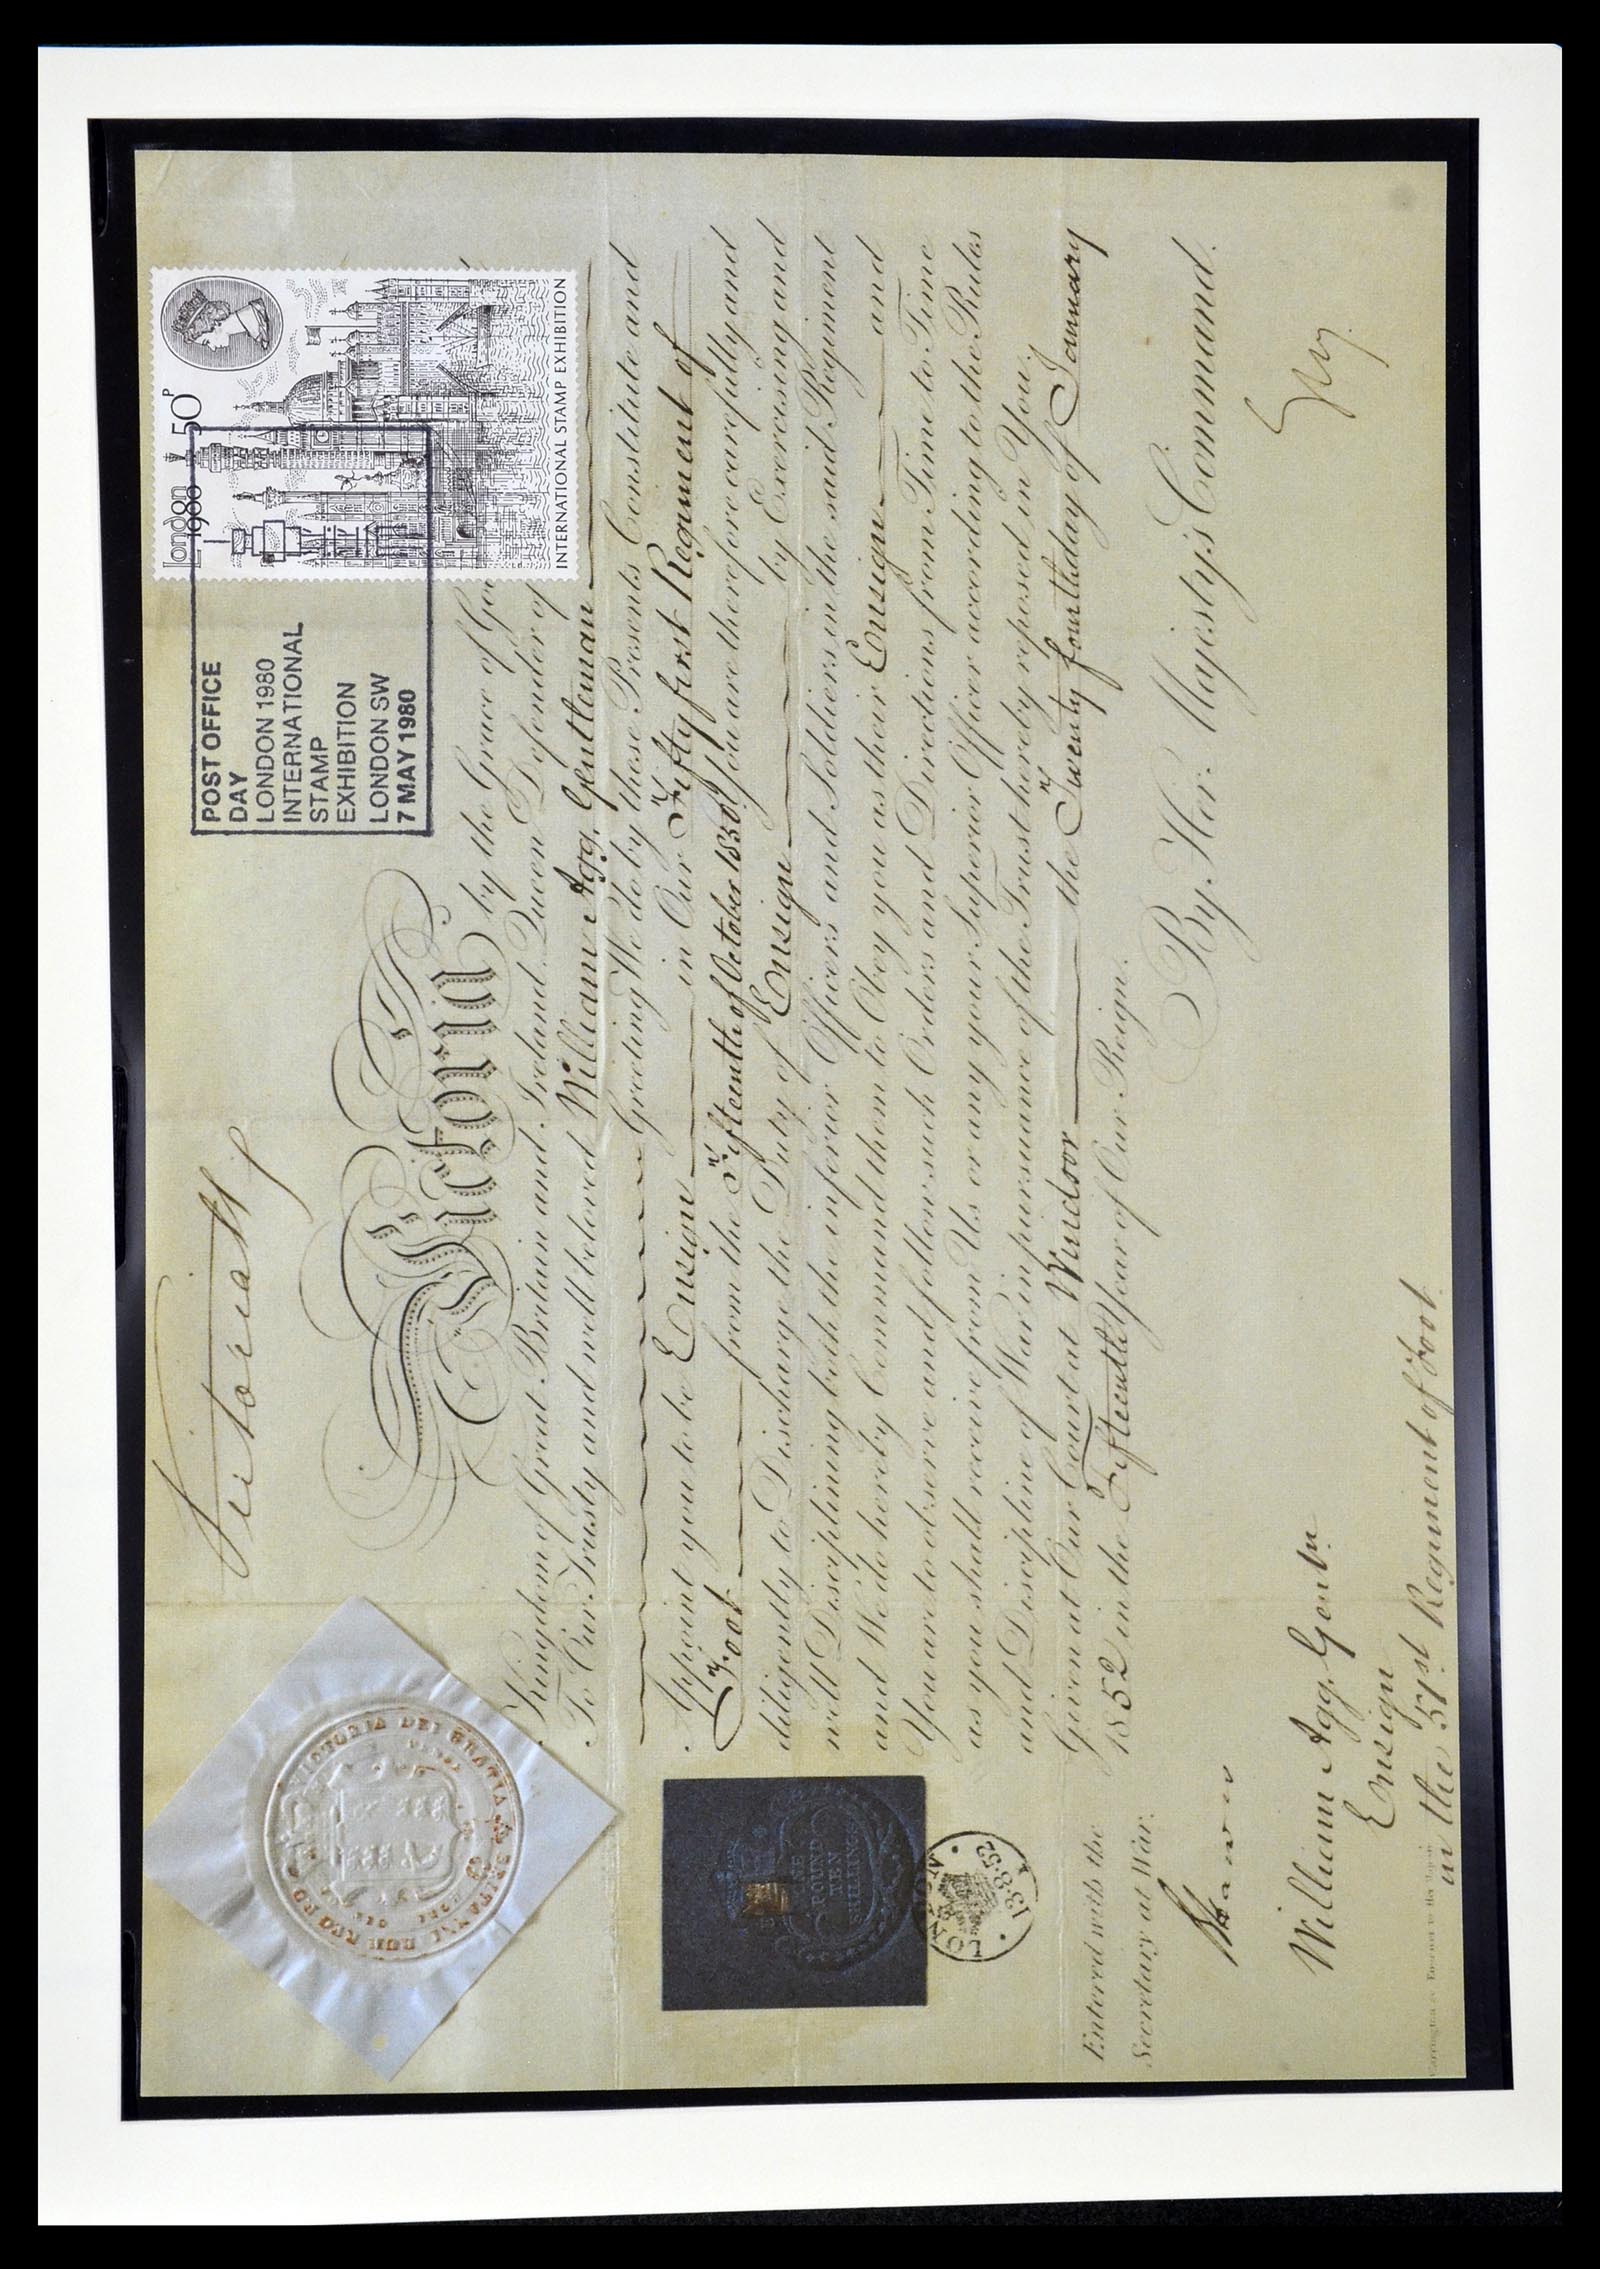 Victoria R
London 1980 50P
INTERNATIONAL STAMP EXHIBITION
POST OFFICE
DAY
LONDON 1980
INTERNATIONAL
STAMP
EXHIBITION
LONDON SW
7 MAY 1980
VICTORIA DEI GRATIA BRITANNIAR REG
Victoria by the Grace of God
Kingdom of Great Britain and Ireland Queen Defender of
To Our Trusty and well beloved William Agg, Gentleman
Greeting We do by these Presents Constitute and
Appoint you to be Ensign in Our Fifty first Regiment of
Foot from the Fifteenth of October 1850 You are therefore carefully and
diligently to Discharge the Duty of Ensign by Exercising and
well Disciplining both the inferior Officers and Soldiers in the said Regiment
and We do hereby Command them to Obey you as their Ensign and
You are to observe and follow such Orders and Directions from Time to Time
as you shall receive from Us or any your Superior Officer according to the Rules
and Discipline of War in pursuance of the Trust hereby reposed in You.
Given at Our Court at Windsor the Twenty fourth day of January
1852 in the Fifteenth Year of Our Reign.
By Her Majesty's Command.
ONE
POUND
TEN
SHILLINGS
LONDON
13·8·52
Entered with the
Secretary at War.
William Agg, Gent.n
Ensign
in the 51st Regiment of foot.